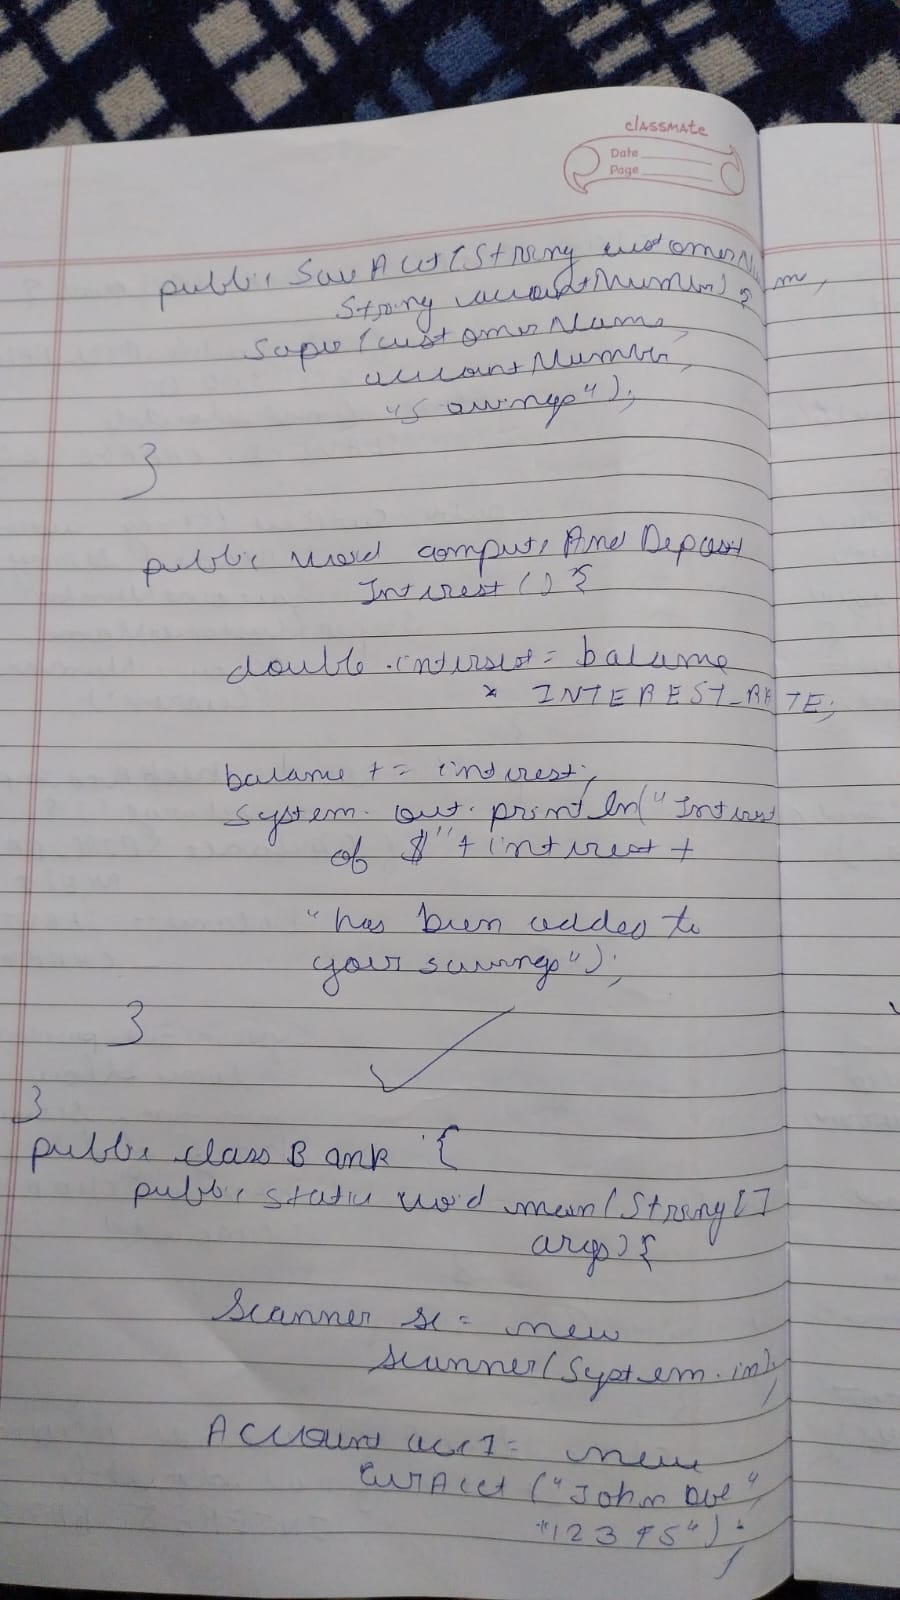 classmate
Date
Page
public SavAcct(String customerNam,
String accountNumber) {
super(customerName,
accountNumber,
"Savings");
}
public void computeAndDeposit
Interest() {
double interest = balance
* INTEREST_RATE;
balance += interest;
System.out.println("Interest
of $" + interest +
"has been added to
your savings");
}
}
public class Bank {
public static void main(String[]
args) {
Scanner sc = new
Scanner(System.in);
Account acc1 = new
CurAcct("John Doe",
"12345");